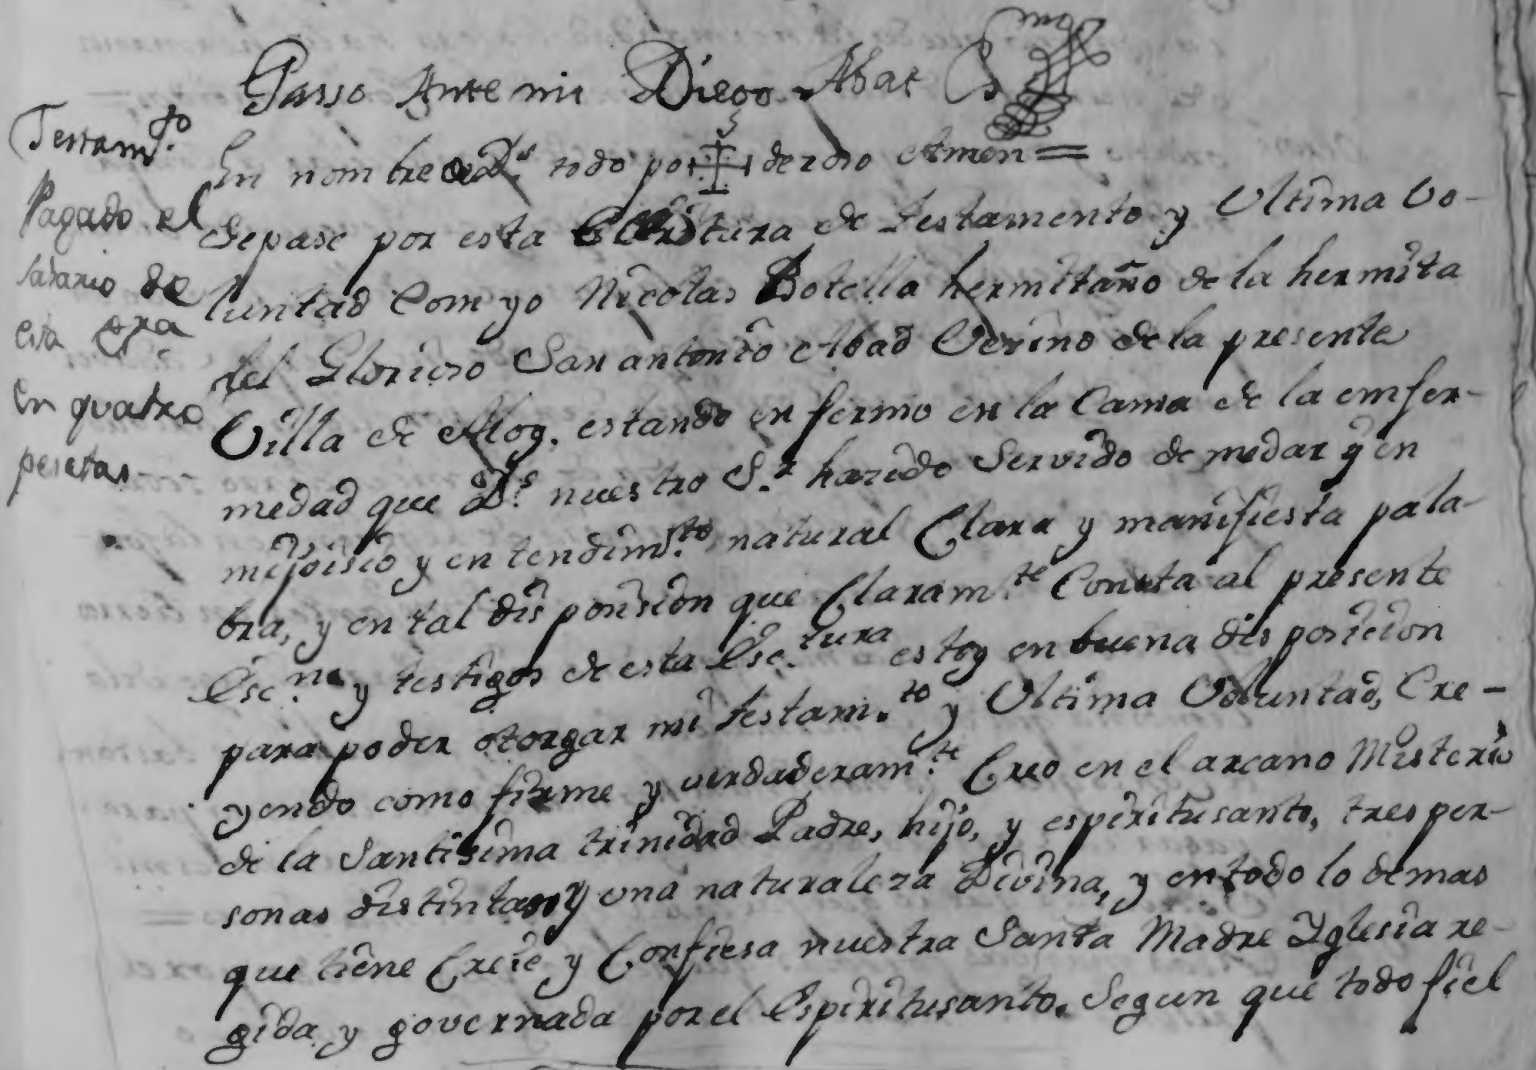 Passo Ante mi Diego Abat
Testam.to
Pagado el
salario de
esta
en quatro
pesetas
En nombre de D.s todo poderoso Amen =
Sepase por esta Escritura de testamento y Ultima Vo-
luntad Com yo Nicolas Botella hermitaño de la hermita
del Glorioso San antonio Abad Vezino de la presente
Villa de Alcoy. estando enfermo en la Cama de la emfer-
medad que D.s nuestro S.r hazido Servido de medar y en
mi joisio y entendim.to natural Clara y manifiesta pala-
bra, y en tal disposision que Claram.te Consta al presente
Esc.no y testigos de esta Esc.tura estoy en buena disposicion
para poder otorgar mi testam.to y Ultima Voluntad, Cre-
yendo como firme y verdaderam.te Creo en el arcano Misterio
de la Santisima trinidad Padre, hijo, y espiritusanto, tres per-
sonas distintas y una naturaleza Divina, y entodo lo demas
que tiene Creie y Confiesa nuestra Santa Madre Yglesia re-
gida y governada por el Espiritusanto. Segun que todo fiel